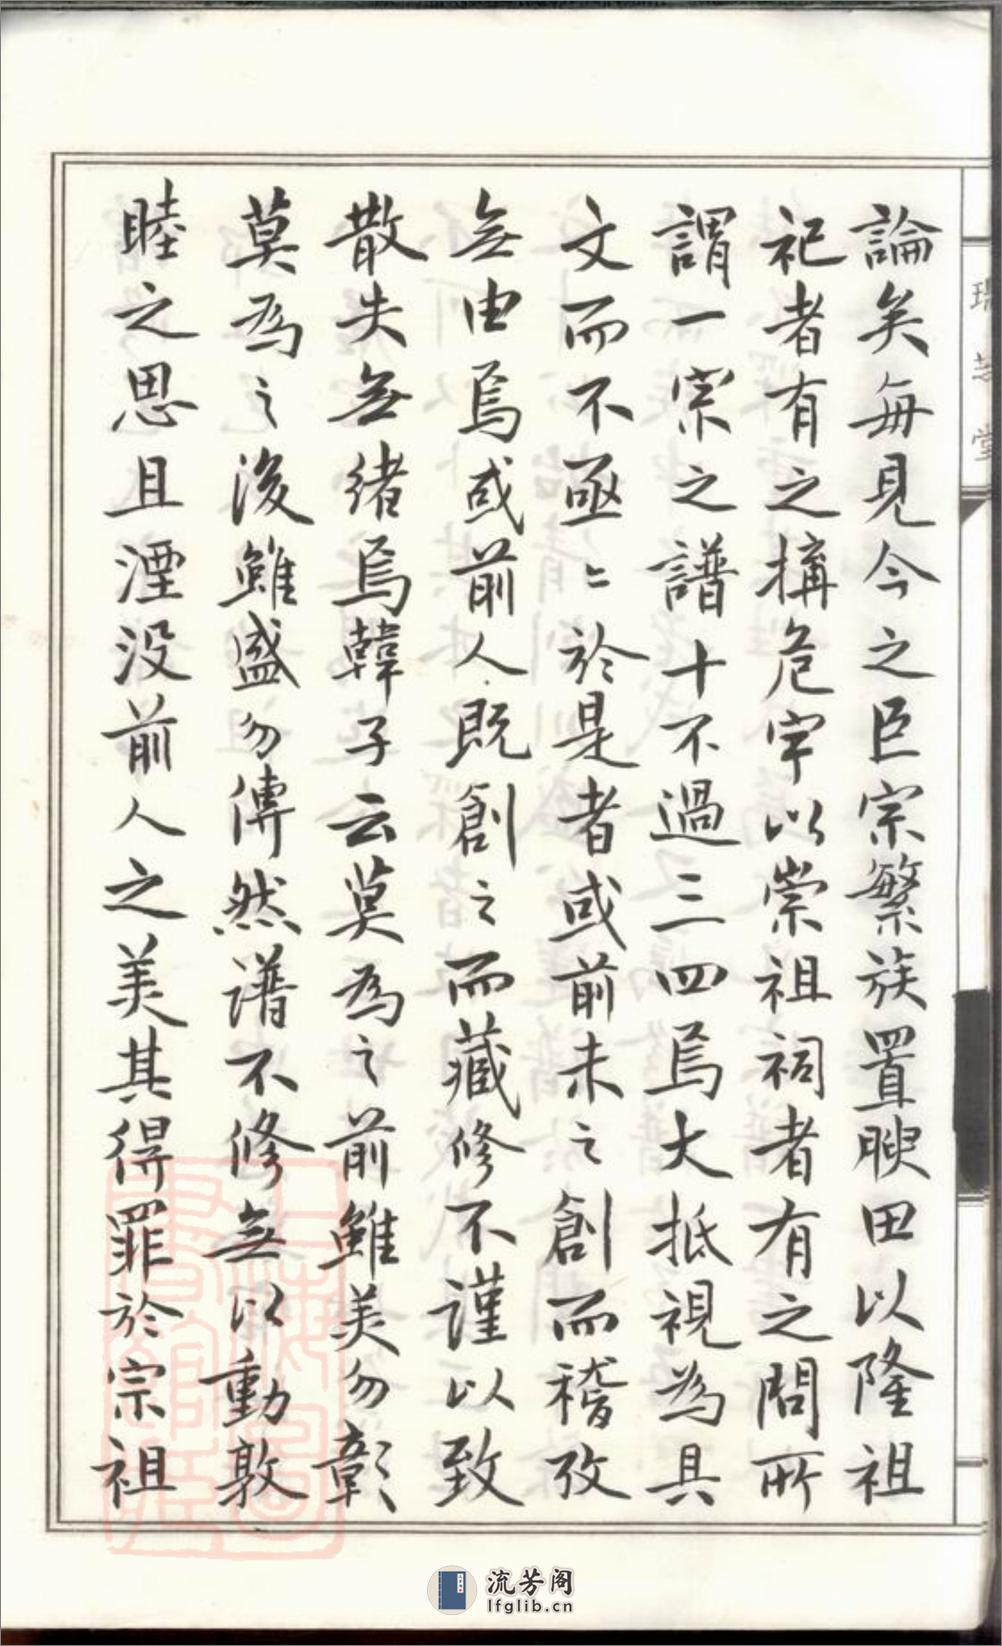 論矣每見今之臣宗繁族置腴田以隆祖
祀者有之搆危宇以崇祖祠者有之問所
謂一宗之譜十不過三四焉大抵視為具
文而不亟〻於是者或前未之創而稽攷
無由焉或前人既創之而藏修不謹以致
散失無緒焉韓子云莫為之前雖美勿彰
莫為之後雖盛勿傳然譜不修無以動敦
睦之思且湮没前人之美其得罪於宗祖
瑞芝堂
流芳阁
lfglib.cn